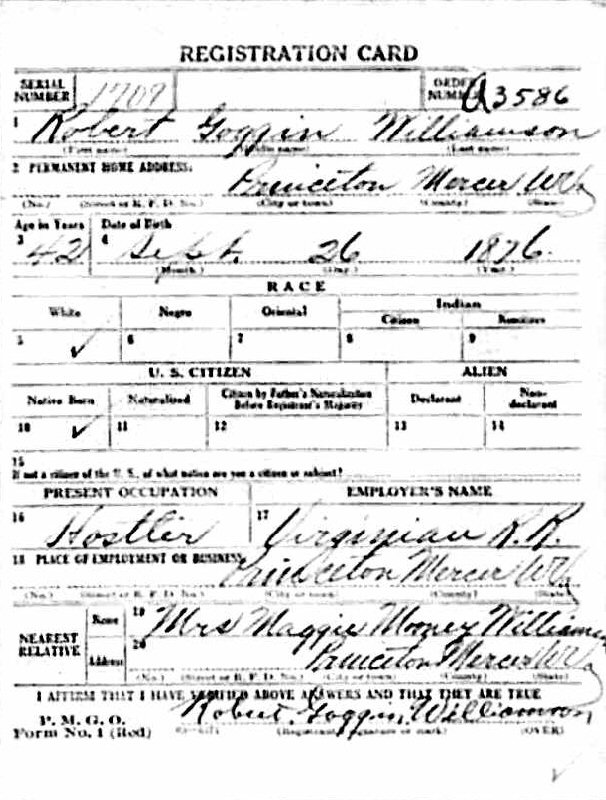 REGISTRATION CARD
SERIAL NUMBER 1709 ORDER NUMBER A3586
1 Robert Goggin Williamson
(First name) (Middle name) (Last name)
2 PERMANENT HOME ADDRESS:
Princeton Mercer WVa
(No.) (Street or R. F. D. No.) (City or town) (County) (State)
Age in Years Date of Birth
3 42 4 Sept. 26 1876
(Month.) (Day.) (Year.)
RACE
White Negro Oriental Indian
Citizen
5 ✓ 6 7 8 9
U. S. CITIZEN ALIEN
Native Born Naturalized Citizen by Father's Naturalization Before Registrant's Majority Declarant Non-declarant
10 ✓ 11 12 13 14
15
If not a citizen of the U. S., of what nation are you a citizen or subject?
PRESENT OCCUPATION EMPLOYER'S NAME
16 Hostler 17 Virginian R.R.
18 PLACE OF EMPLOYMENT OR BUSINESS:
Princeton Mercer WVa
(No.) (Street or R. F. D. No.) (City or town) (County) (State)
NEAREST RELATIVE Name 19 Mrs Maggie Mooney Williamson
Address 20 Princeton Mercer WVa
(No.) (Street or R. F. D. No.) (City or town) (County) (State)
I AFFIRM THAT I HAVE VERIFIED ABOVE ANSWERS AND THAT THEY ARE TRUE
P. M. G. O.
Form No. 1 (Red) Robert Goggin Williamson
(Registrant's signature or mark) (OVER)